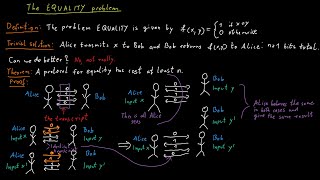 The EQUALITY problem
Definition: The problem EQUALITY is given by f(x,y) = { 1 if x=y
0 otherwise
Trivial solution: Alice transmits x to Bob and Bob returns f(x,y) to Alice: n+1 bits total.
Can we do better? No, not really.
Theorem: A protocol for equality has cost at least n.
Proof:
Alice
Bob
the transcript
This is all Alice sees
Alice
Input x
Bob
Input y
Alice
Input x'
Bob
Input y'
Identical
Alice
Input x
Bob
Input y
Bob
Input y'
Alice behaves the same
in both cases and
give the same results